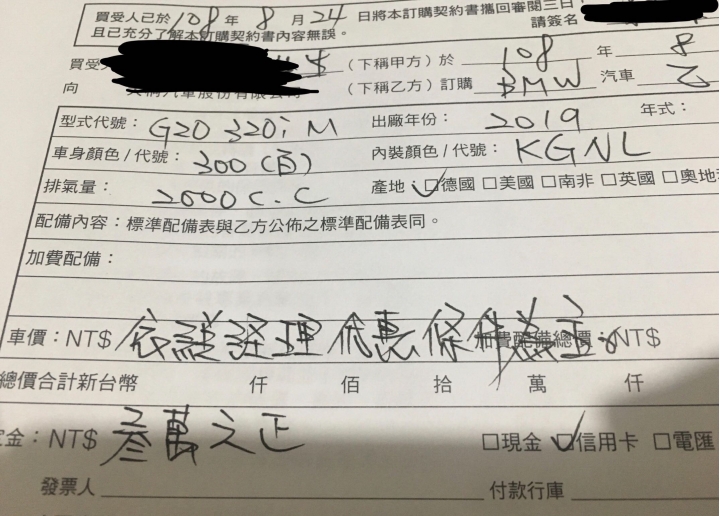 買受人已於108年8月24日將本訂購契約書攜回審閱三日
且已充分了解本訂購契約書內容無誤。 請簽名
買受 (下稱甲方)於 108 年 8
向 汽車股份有限公司 (下稱乙方)訂購 BMW 汽車 乙
型式代號：G20 320i M 出廠年份：2019 年式：
車身顏色/代號：300(白) 內裝顏色/代號：KGNL
排氣量：2000 C.C 產地 ☑德國 □美國 □南非 □英國 □奧地
配備內容：標準配備表與乙方公佈之標準配備表同。
加費配備：
車價：NT$ 依 經理 優惠條件為主。加費配備總價：NT$
總價合計新台幣 仟 佰 拾 萬 仟
金：NT$ 參萬元正 □現金 ☑信用卡 □電匯
發票人 付款行庫